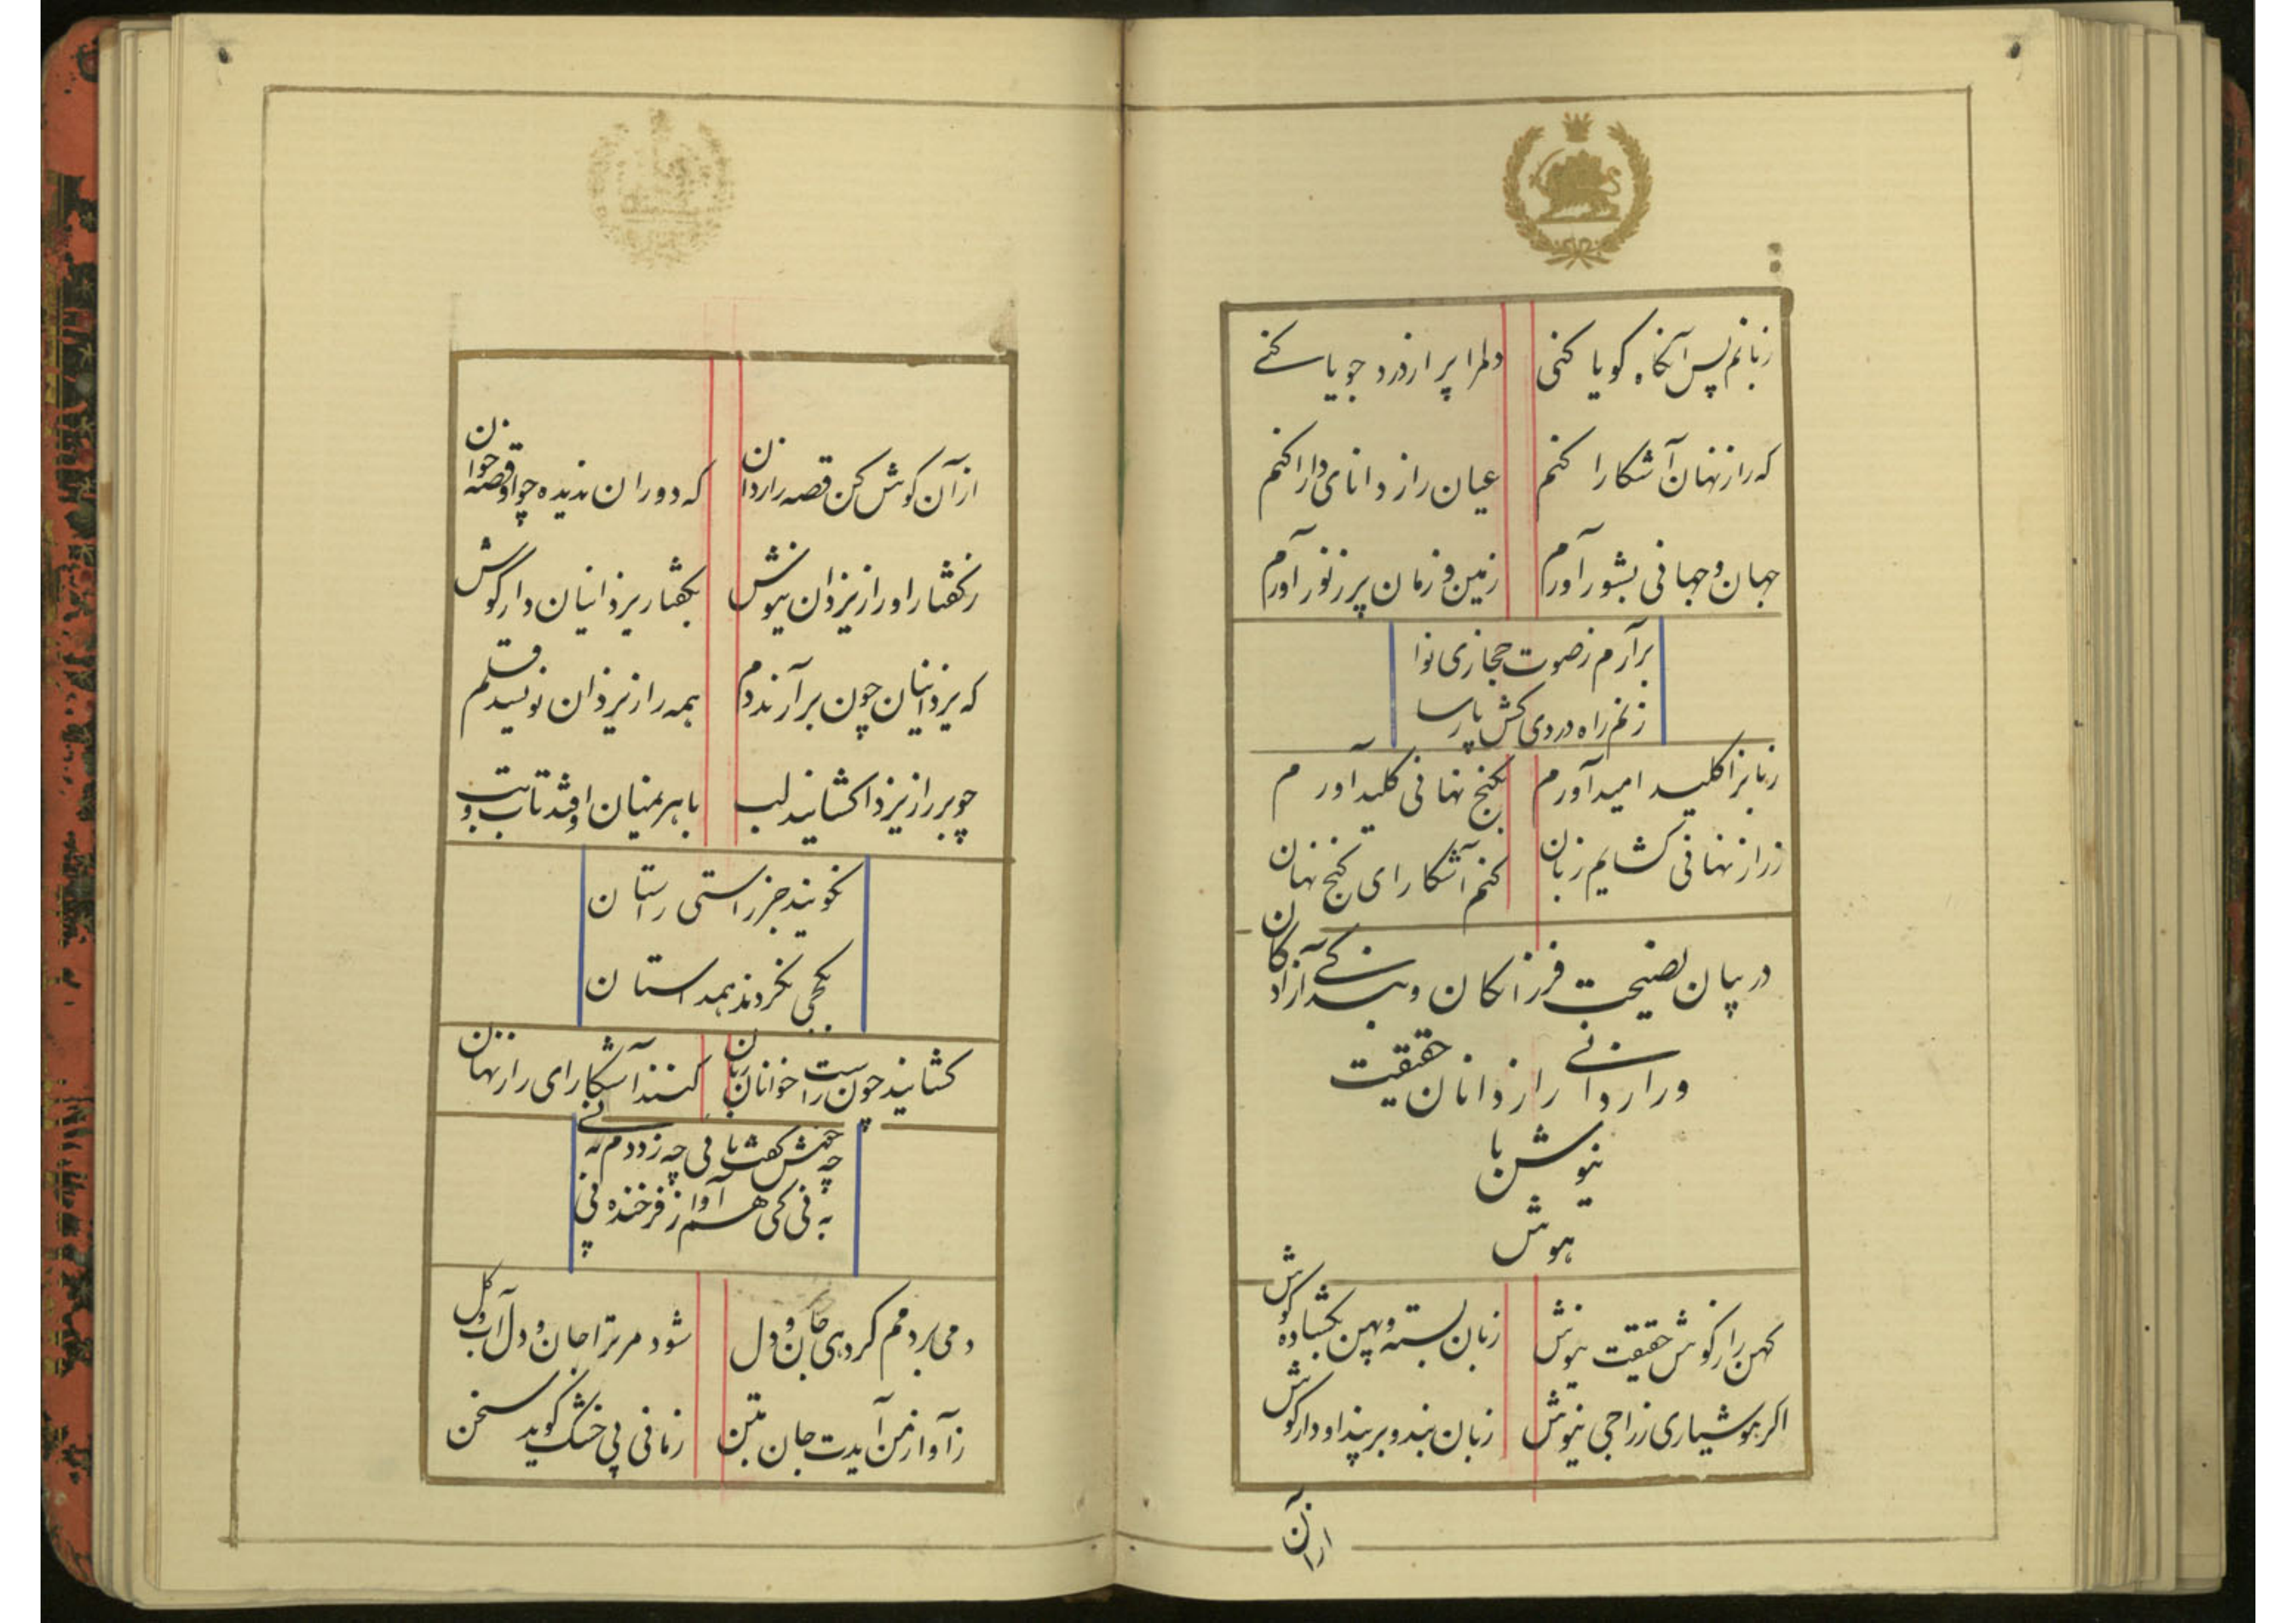 زبانم پس آنگاه کویا کنی دلمرا پر از درد جویا کنے
که راز نهان آشکارا کنم عیان راز دانای دارا کنم
جهان و جهانی بشور آورم زمین و زمان پر ز نور آورم
برآرم ز صوت حجازی نوا
زنم راه دردی کش پارسا
زبانرا کلید امید آورم بکنج نهانی کلید آورم
ز راز نهانی کشایم زبان کنم آشکارای کنج نهان
در بیان نصیحت فرزانکان و بندکے آزادکان
و رازدانے رازدانان حقیقت
نیوش با
هوش
کهن راز کوش حقیقت نیوش زبان بسته و پهن بکشاده کوش
اکر هوشیاری ز راجی نیوش زبان بند و بر پند او دار کوش
از آن
از آن کوش کن قصه رازدان که دوران ندیده چو او قصه خوان
ز کفتار او راز یزدان نیوش بکفتار یزدانیان دار کوش
که یزدانیان چون برآرند دم همه راز یزدان نویسد قلم
چو بر راز یزدا کشایند لب باهریمنیان اوفتد تاب و تب
نکویند جز راستی راستان
بکجی نکردند همداستان
کشایند چون راست خوانان زبان کنند آشکارای راز نهان
چه خوش کفت با نی چه زد دم به نے
به نی کی هم آواز فرخنده پی
دمی بردمم کر دهی جان و دل شود مر ترا جان و دل آب و کل
ز آواز من آیدت جان بتن زمانی پی خشک کوید سخن